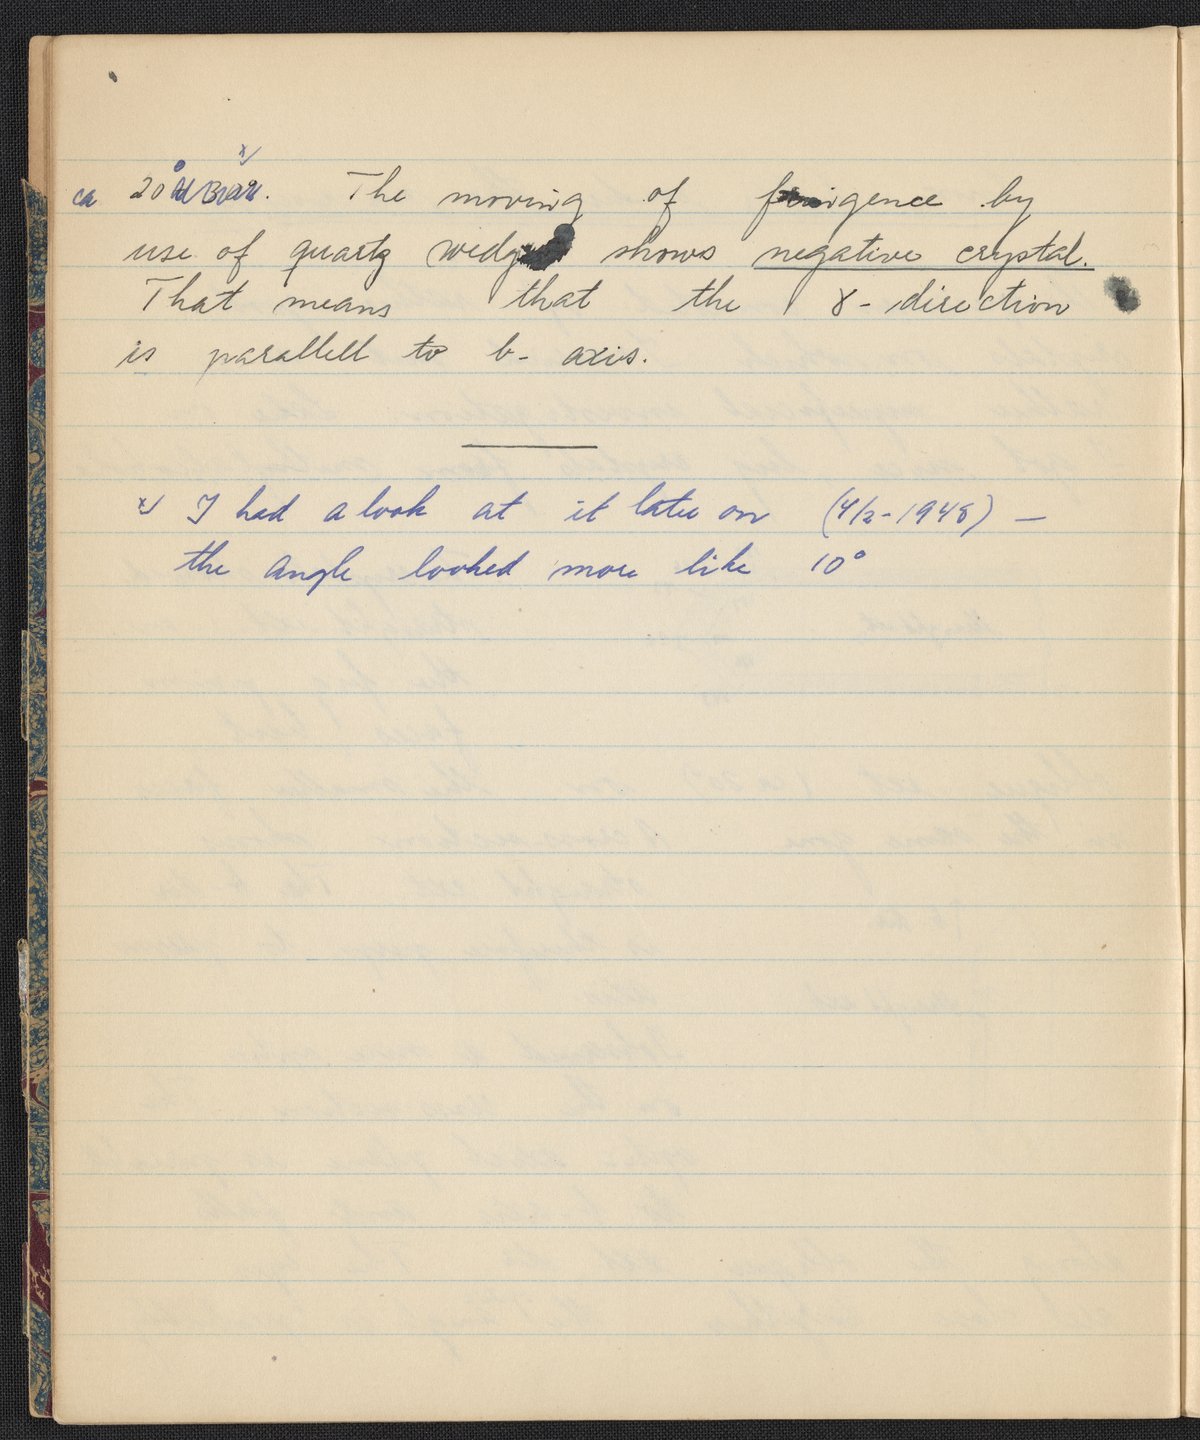 ca 20° x) The moving of fringence by
use of quartz wedge shows negative crystal.
That means that the γ- direction
is parallell to b- axis.
x) I had a look at it later on (4/2-1948) —
the angle looked more like 10°